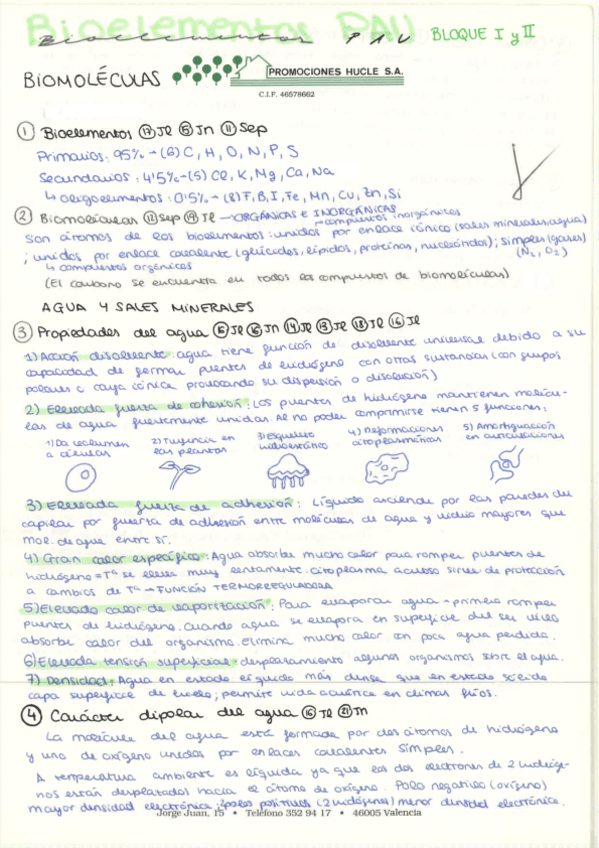 Bioelementos PAU
Bioelementos PAU BLOQUE I y II
BIOMOLÉCULAS
PROMOCIONES HUCLE S.A.
C.I.F. 46578662
① Bioelementos ⑰Jl ⑤Jn ⑪Sep
Primarios: 95% → (6) C, H, O, N, P, S
Secundarios: 4'5% → (5) Cl, K, Mg, Ca, Na
↳ oligoelementos: 0'5% → (8) F, B, I, Fe, Mn, Cu, Zn, Si
② Biomoléculas Sep Jl → ORGÁNICAS E INORGÁNICAS
→ compuestos inorgánicos
Son átomos de los bioelementos: unidos por enlace iónico (sales minerales, agua)
; unidos por enlace covalente (glúcidos, lípidos, proteínas, nucleótidos); simples (gases)
↳ compuestos orgánicos (N₂, O₂)
(El carbono se encuentra en todos los compuestos de biomoléculas)
AGUA Y SALES MINERALES
③ Propiedades del agua ⑮Jl ⑯Jn ⑭Jl ⑬Jl ⑱Jl ⑯Jl
1) Acción disolvente: agua tiene función de disolvente universal debido a su
capacidad de formar puentes de hidrógeno con otras sustancias (con grupos
polares o carga iónica provocando su dispersión o disolución)
2) Elevada fuerza de cohesión: Los puentes de hidrógeno mantienen molécu-
las de agua fuertemente unidas. Al no poder comprimirse tienen 5 funciones:
1) Da volumen a células
2) Turgencia en las plantas
3) Esqueleto hidrostático
4) Deformaciones citoplasmáticas
5) Amortiguación en articulaciones
3) Elevada fuerza de adhesión: Líquido asciende por las paredes del
capilar por fuerza de adhesión entre moléculas de agua y vidrio mayores que
mol. de agua entre sí.
4) Gran calor específico: Agua absorbe mucho calor para romper puentes de
hidrógeno = Tª se eleva muy lentamente. citoplasma acuoso sirve de protección
a cambios de Tª → FUNCIÓN TERMORREGULADORA
5) Elevado calor de vaporización: Para evaporar agua → primero romper
puentes de hidrógeno. Cuando agua se evapora en superficie del ser vivo
absorbe calor del organismo. Elimina mucho calor con poca agua perdida.
6) Elevada tensión superficial: desplazamiento algunos organismos sobre el agua.
7) Densidad: Agua en estado líquido más densa que en estado sólido
capa superficie de hielo; permite vida acuática en climas fríos.
④ Carácter dipolar del agua ⑯Jl ㉑Jn
La molécula del agua está formada por dos átomos de hidrógeno
y uno de oxígeno unidos por enlaces covalentes simples.
A temperatura ambiente es líquida ya que los dos electrones de 2 hidróge-
nos están desplazados hacia el átomo de oxígeno. Polo negativo (oxígeno)
mayor densidad electrónica; 2polos positivos (2 hidrógenos) menor densidad electrónica.
Jorge Juan, 15 • Teléfono 352 94 17 • 46005 Valencia